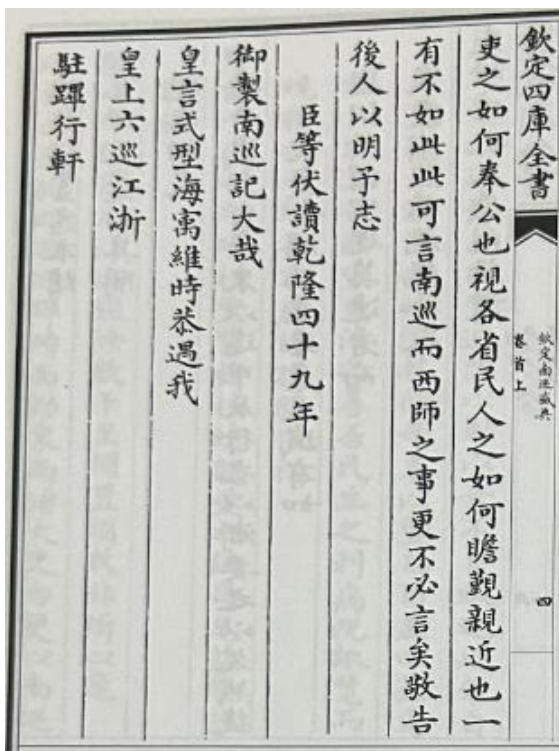 欽定四庫全書
欽定南巡盛典
卷首上
四
吏之如何奉公也視各省民人之如何瞻覲親近也一
有不如此此可言南巡而西師之事更不必言矣敬告
後人以明予志
臣等伏讀乾隆四十九年
御製南巡記大哉
皇言式型海寓維時恭遇我
皇上六巡江浙
駐蹕行軒